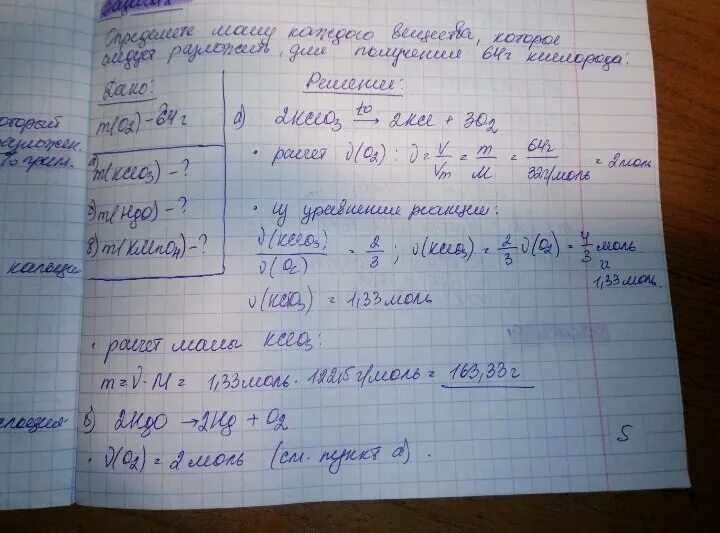 Задача
Определите массу каждого вещества, которое
следует разложить, для получения 64г кислорода:
Дано:
Решение:
m(O₂) - 64г
а) m(KClO₃) - ?
б) m(HgO) - ?
в) m(KMnO₄) - ?
а) 2KClO₃ →t° 2KCl + 3O₂
• расчет ν(O₂): ν = V/Vm = m/M = 64г/32г/моль = 2 моль
• из уравнения реакции:
ν(KClO₃)/ν(O₂) = 2/3; ν(KClO₃) = 2/3 ν(O₂) = 4/3 моль
1,33 моль.
ν(KClO₃) = 1,33 моль
• расчет массы KClO₃:
m = ν·M = 1,33 моль · 122,5 г/моль = 163,33г
б) 2HgO → 2Hg + O₂
• ν(O₂) = 2 моль (см. пункт а).
5
который
разложен.